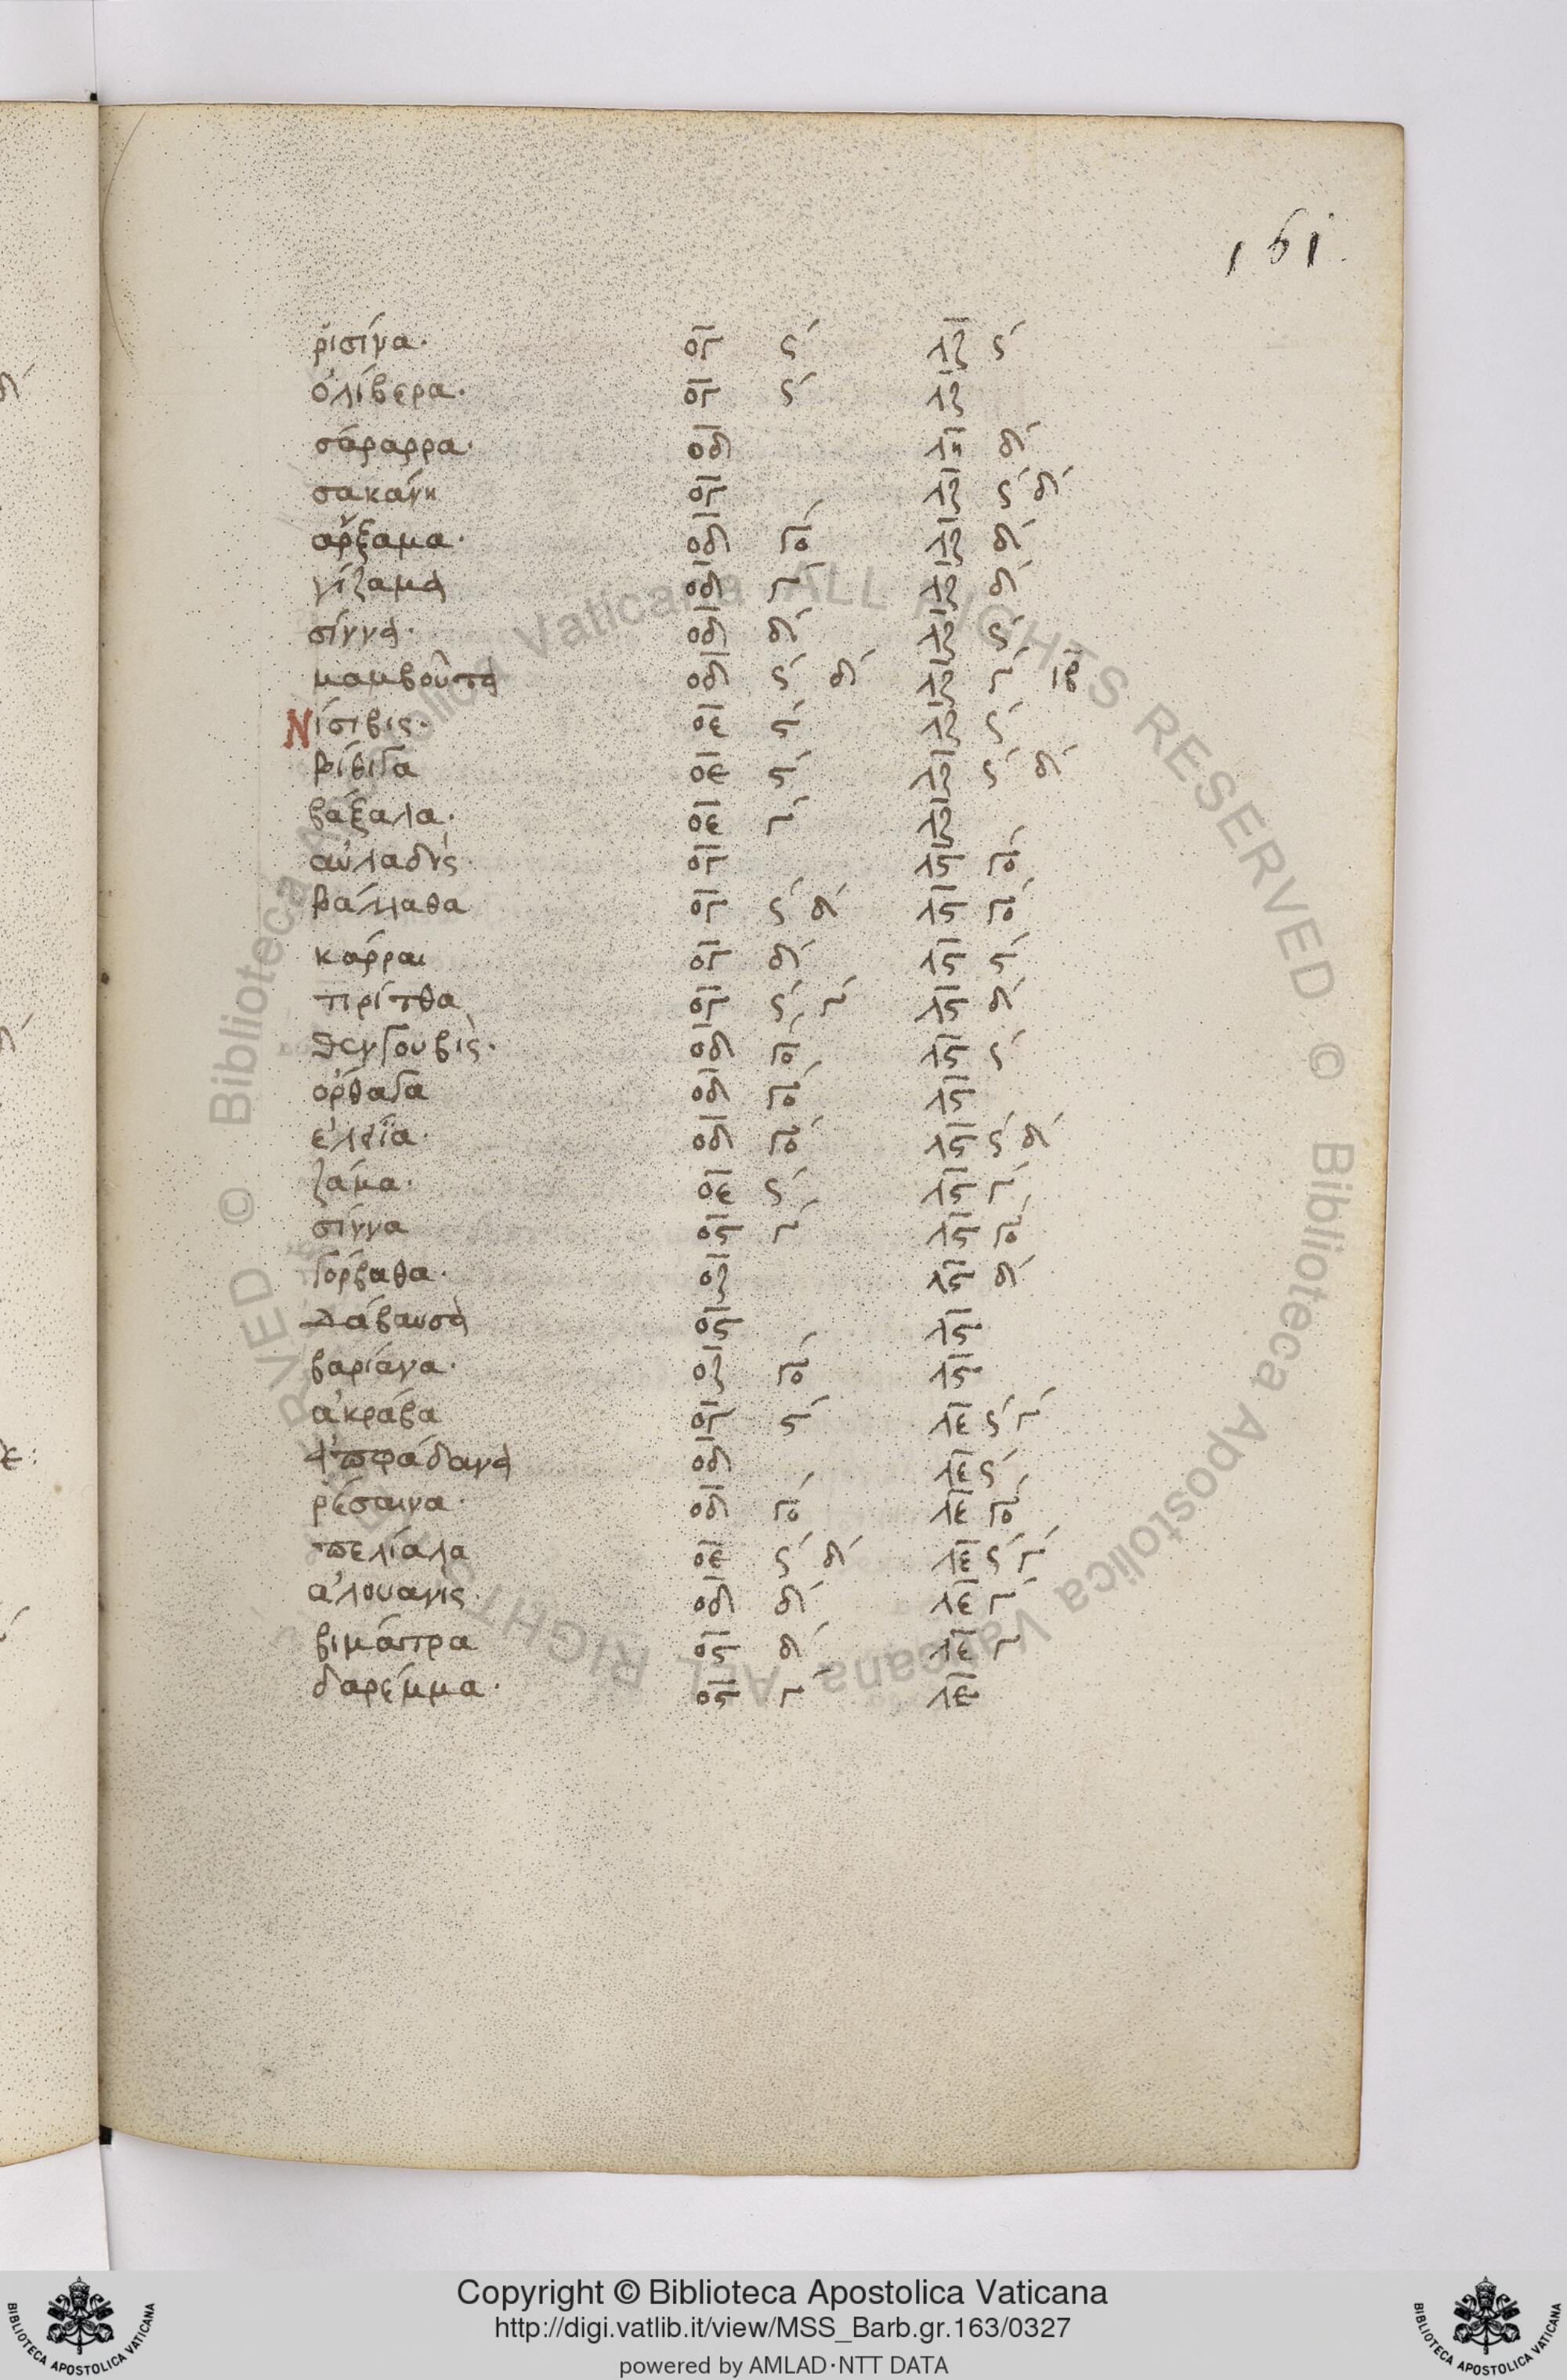 161.
ῥισίνα· ογ ϛ´ λζ ϛ´
ὀλίβερα· ογ ϛ´ λζ
σάραρρα· οδ λη δ´
σακάνη ογ λζ ϛ´ δ´
ἄρξαμα· οδ γο´ λζ δ´
γίζαμα οδ γ´ λζ δ´
σίννα· οδ δ´ λζ ϛ´
μαμβοῦτα οδ ϛ´ δ´ λζ γ´ ιβ
Νίσιβις· οε ϛ´ λζ ϛ´
βίβιγα οε ϛ´ λζ ϛ´ δ´
βάξαλα· οε γ´ λζ
αὐλαδὶς ογ λϛ γο´
βάλλαθα ογ ϛ´ δ´ λϛ γο´
κάρραι ογ δ´ λϛ ϛ´
τιρίτθα ογ ϛ´ γ´ λϛ δ´
θενγουβὶς· οδ γο´ λϛ ϛ´
ὀρθαγα οδ γο´ λϛ
ἐλεΐα· οδ γο´ λϛ ϛ´ δ´
ζάμα· οε ϛ´ λϛ γ´
σίννα οϛ γ´ λϛ γο´
γόρβαθα· οζ λϛ δ´
Δάβαυσα οϛ λϛ
βαρίανα· οζ γο´ λϛ
ἀκράβα ογ ϛ´ λε ϛ´ γ´
ἀπφάδανα οδ λε ϛ´
ῥέσαινα· οδ γο´ λε γο´
πελίαλα οε ϛ´ δ´ λε ϛ´ γ´
ἀλουανις· οδ δ´ λε γ´
βιμάτρα οϛ δ´ λε γ´
δαρέμμα· οϛ γ´ λε
© Biblioteca Apostolica Vaticana ALL RIGHTS RESERVED © Biblioteca Apostolica Vaticana ALL RIGHTS RESERVED
Copyright © Biblioteca Apostolica Vaticana
http://digi.vatlib.it/view/MSS_Barb.gr.163/0327
powered by AMLAD·NTT DATA
BIBLIOTECA APOSTOLICA VATICANA
BIBLIOTECA APOSTOLICA VATICANA